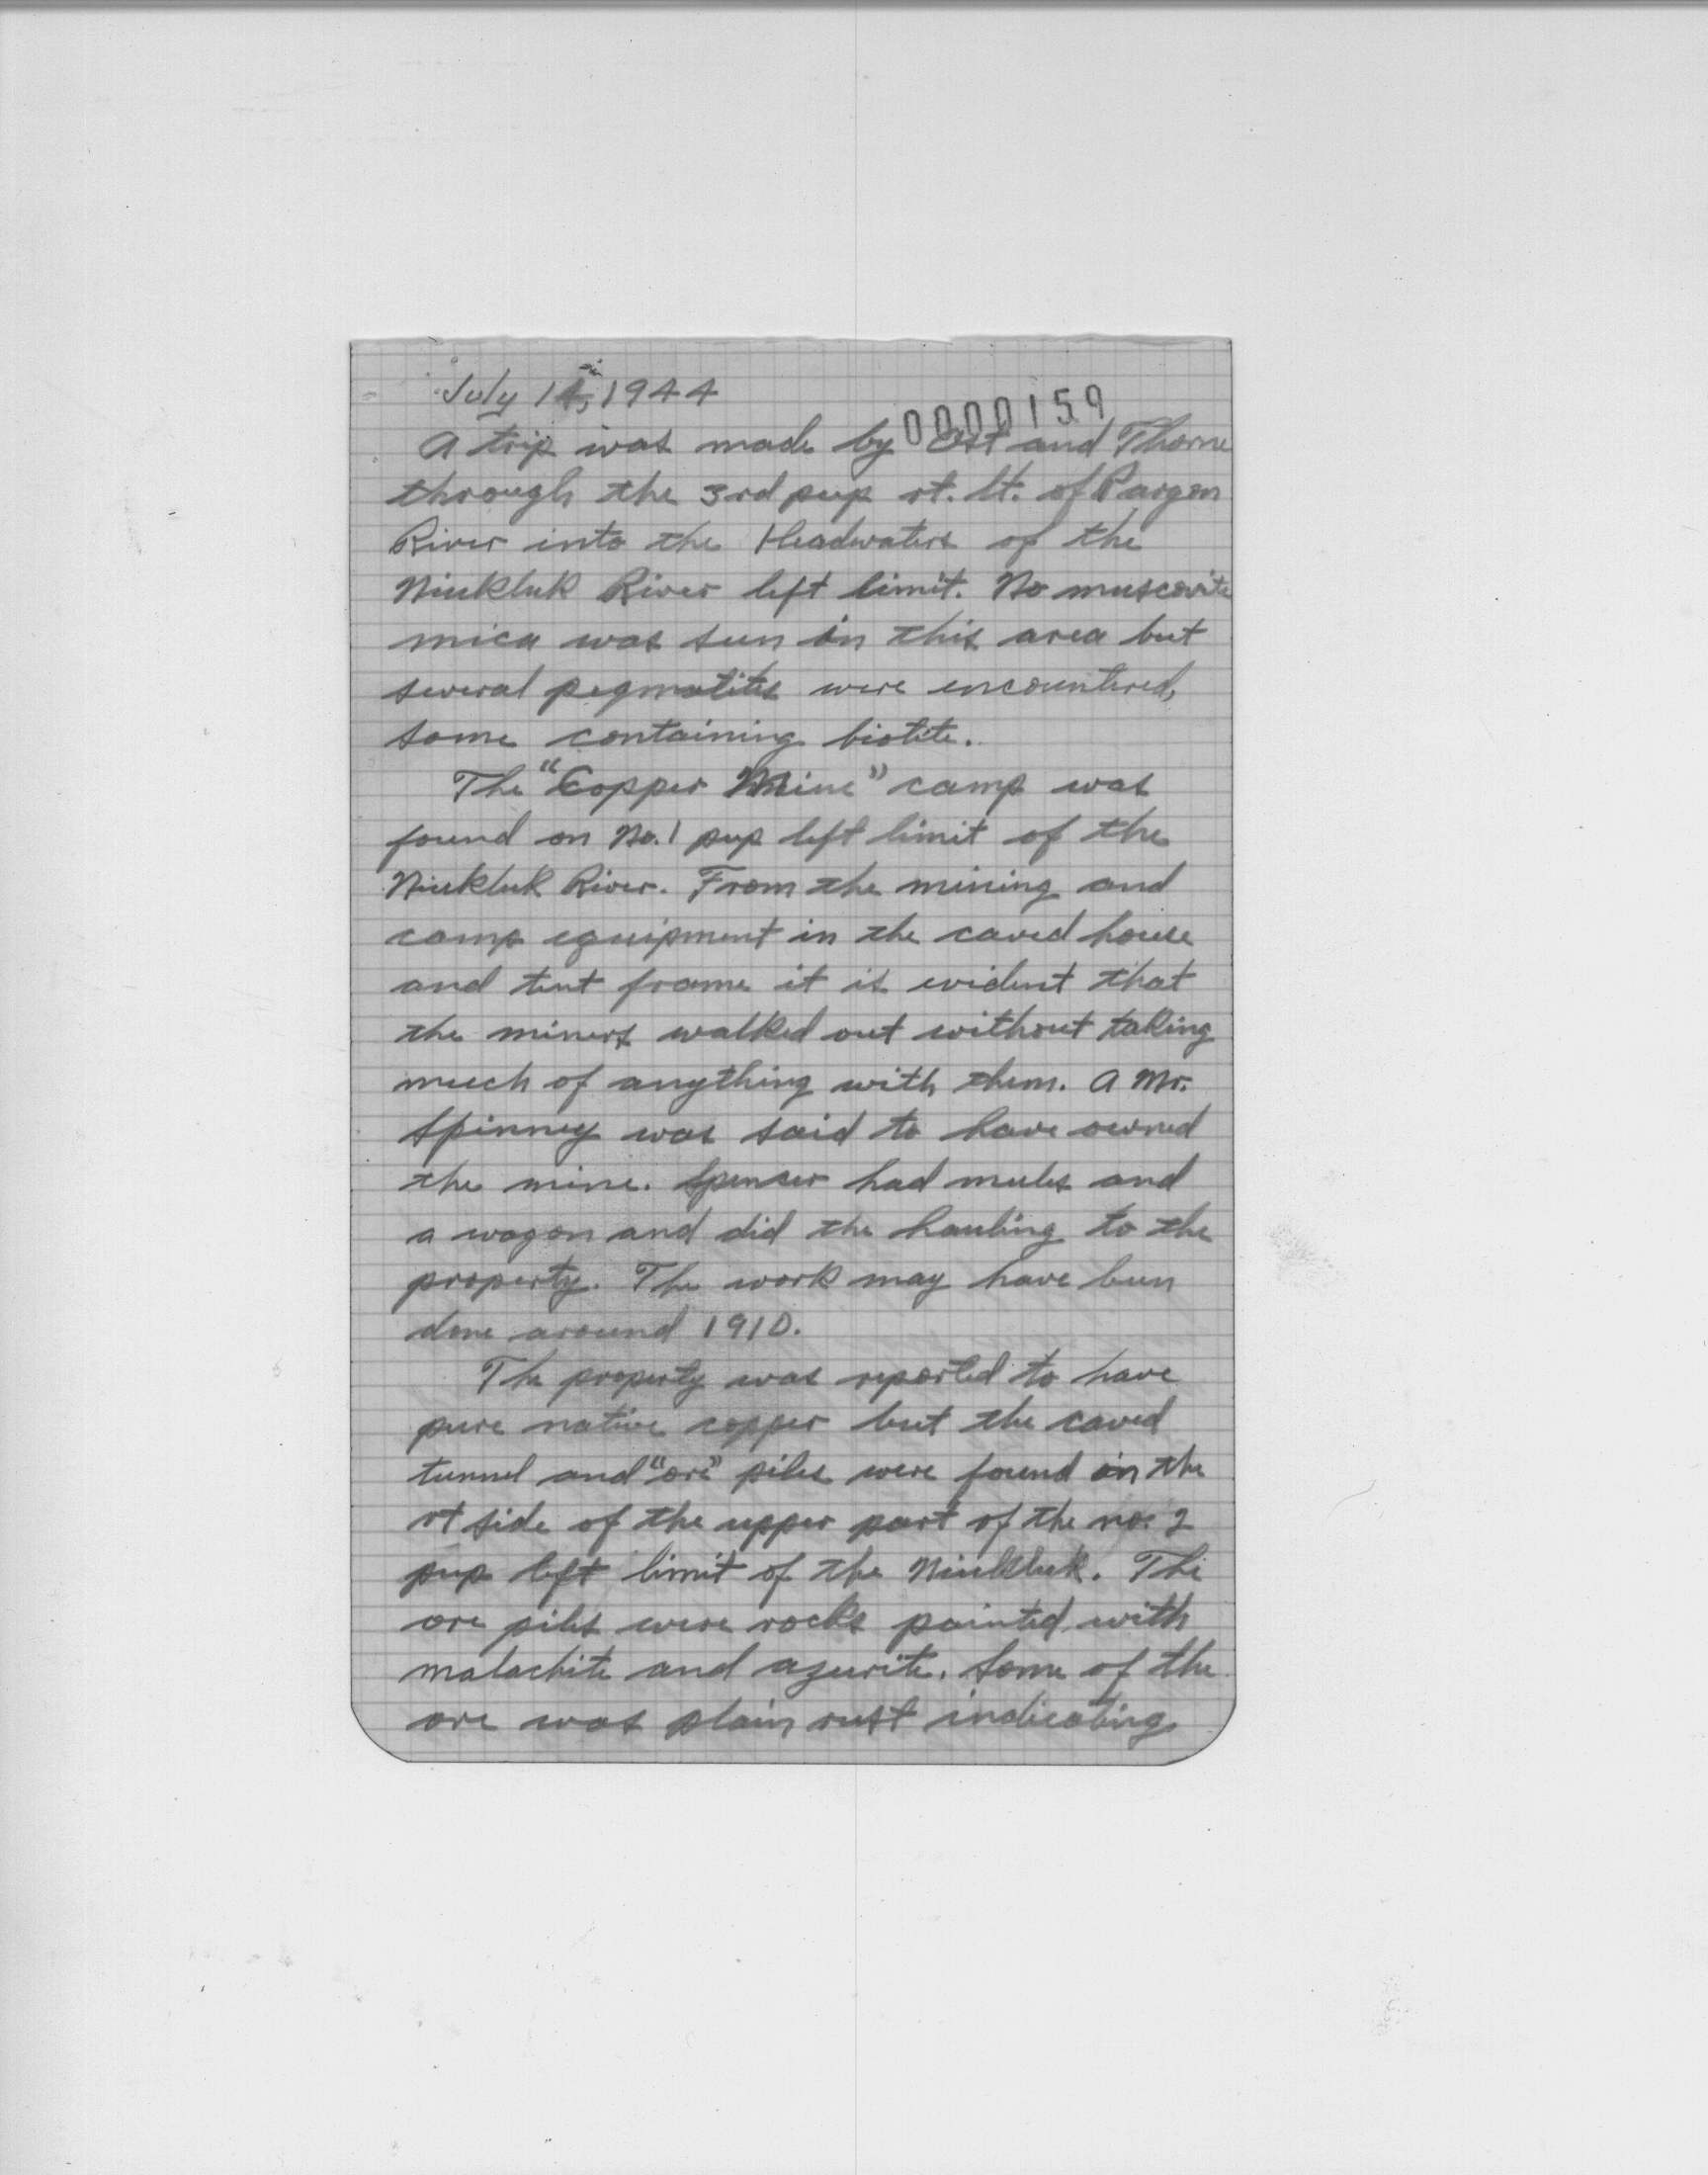 July 14, 1944
0000159
A trip was made by Ost and Thorne
through the 3rd pup rt. lt. of Pargon
River into the Headwaters of the
Niukluk River left limit. No muscovite
mica was seen in this area but
several pegmatites were encountered,
some containing biotite.
The "Copper Mine" camp was
found on No. 1 pup left limit of the
Niukluk River. From the mining and
camp equipment in the caved house
and tent frame it is evident that
the miners walked out without taking
much of anything with them. A Mr.
Spinney was said to have owned
the mine. Spenser had mules and
a wagon and did the hauling to the
property. The work may have been
done around 1910.
The property was reported to have
pure native copper but the caved
tunnel and "ore" piles were found on the
rt side of the upper part of the no. 2
pup left limit of the Niukluk. The
ore piles were rocks painted with
malachite and azurite. Some of the
ore was plain rust indicating